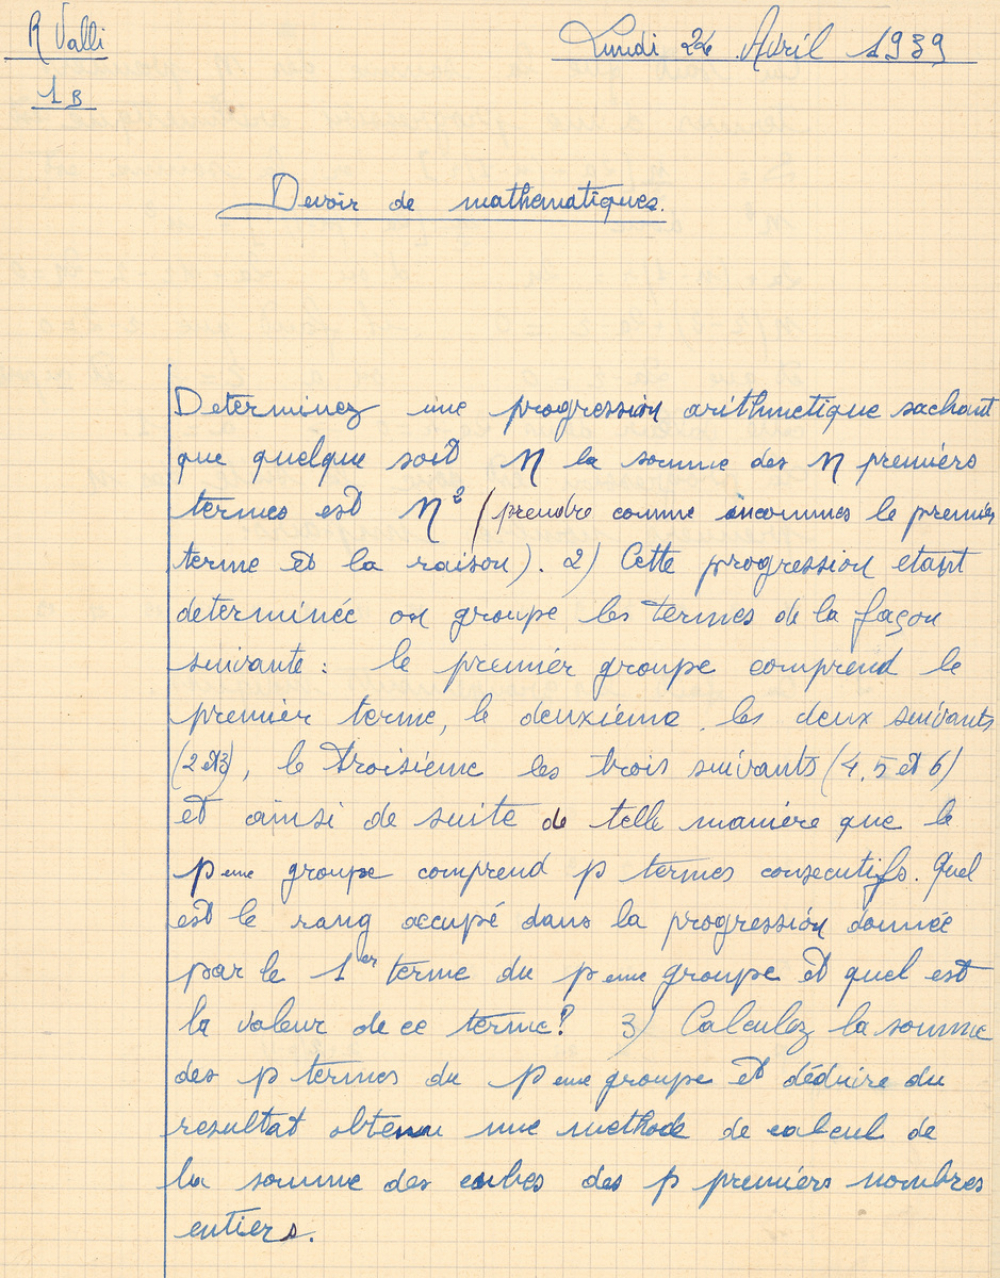 R Valli
Lundi 24 Avril 1939
1 B
Devoir de mathematiques.
Determinez une progression arithmetique sachant
que quelque soit n la somme des n premiers
termes est n² (prendre comme inconnues le premier
terme et la raison). 2) Cette progression etant
determinée on groupe les termes de la façon
suivante : le premier groupe comprend le
premier terme, le deuxième les deux suivants
(2 et 3), le troisième les trois suivants (4, 5 et 6)
et ainsi de suite de telle manière que le
p eme groupe comprend p termes consecutifs. Quel
est le rang occupé dans la progression donnée
par le 1er terme du p eme groupe et quel est
la valeur de ce terme? 3) Calculez la somme
des p termes du p eme groupe et déduire du
resultat obtenu une methode de calcul de
la somme des cubes des p premiers nombres
entiers.